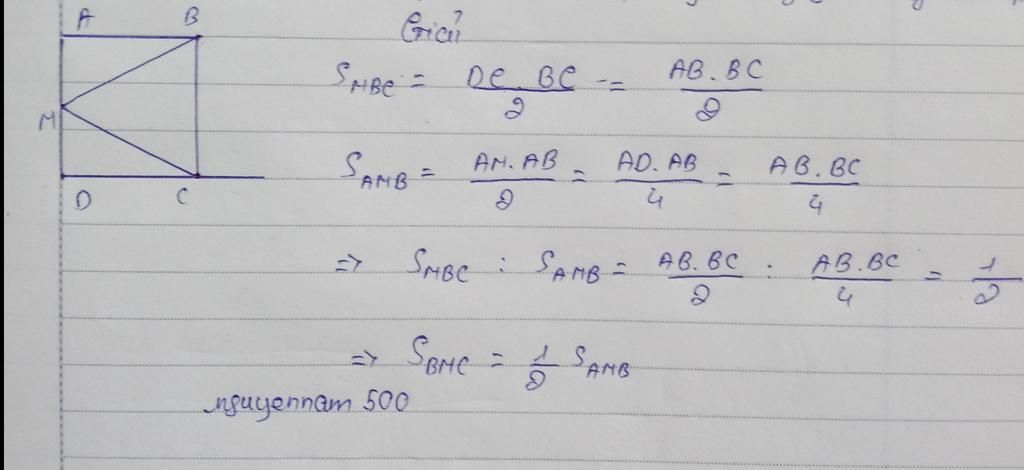 A B
M
D C
Giải
S_MBC = DC . BC / 2 = AB . BC / 2
S_AMB = AM . AB / 2 = AD . AB / 4 = AB . BC / 4
=> S_MBC : S_AMB = AB . BC / 2 : AB . BC / 4 = 1 / 2
=> S_BMC = 1 / 2 S_AMB
nguyennam 500